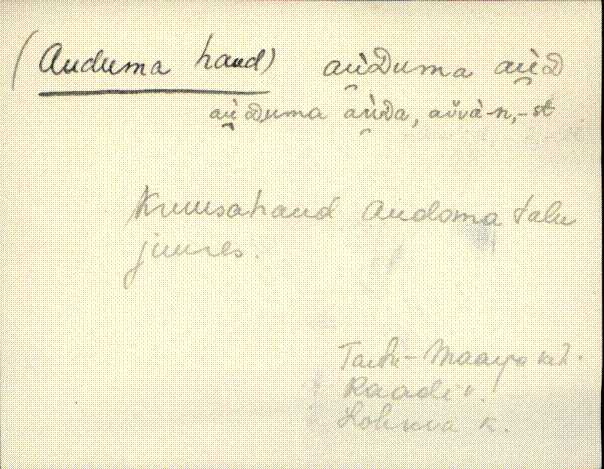 (Auduma haud) au̯ὶDuma au̯ὶD
au̯ὶDuma au̯ὶDa, aŭvà-n, -st
Kruusahaud Audoma talu
juures.
Tartu-Maarja kih.
Raadi v.
Lohkva k.